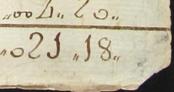 „004„ 20„
„021 „18„